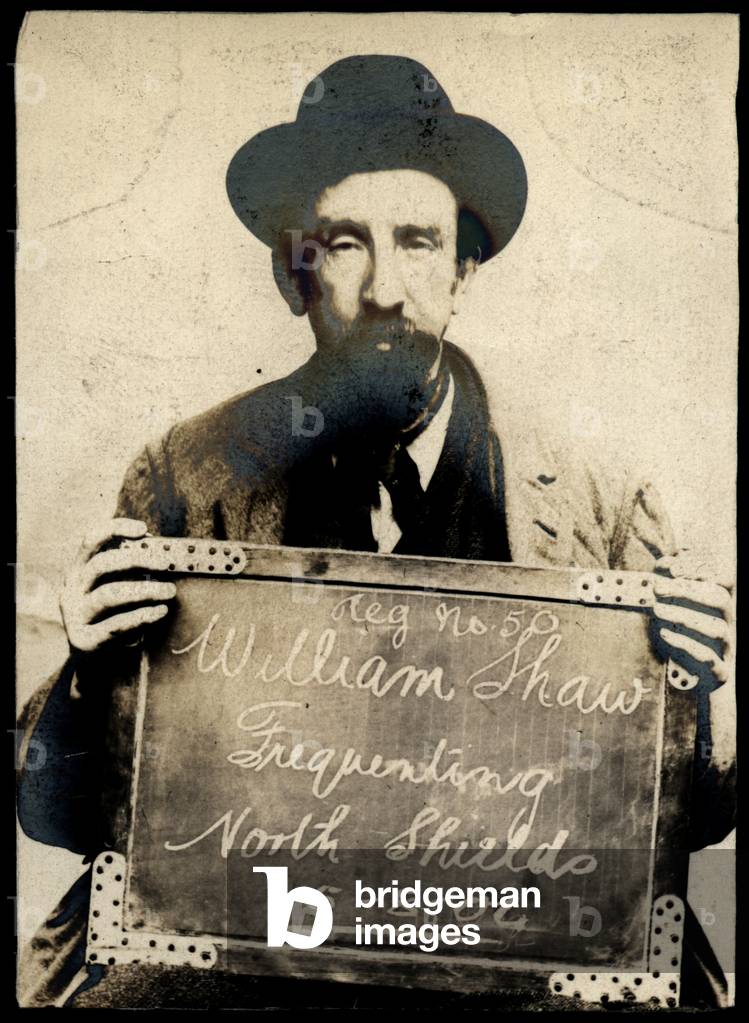 Reg No. 50
William Shaw
Frequenting
North Shields
bridgeman
images